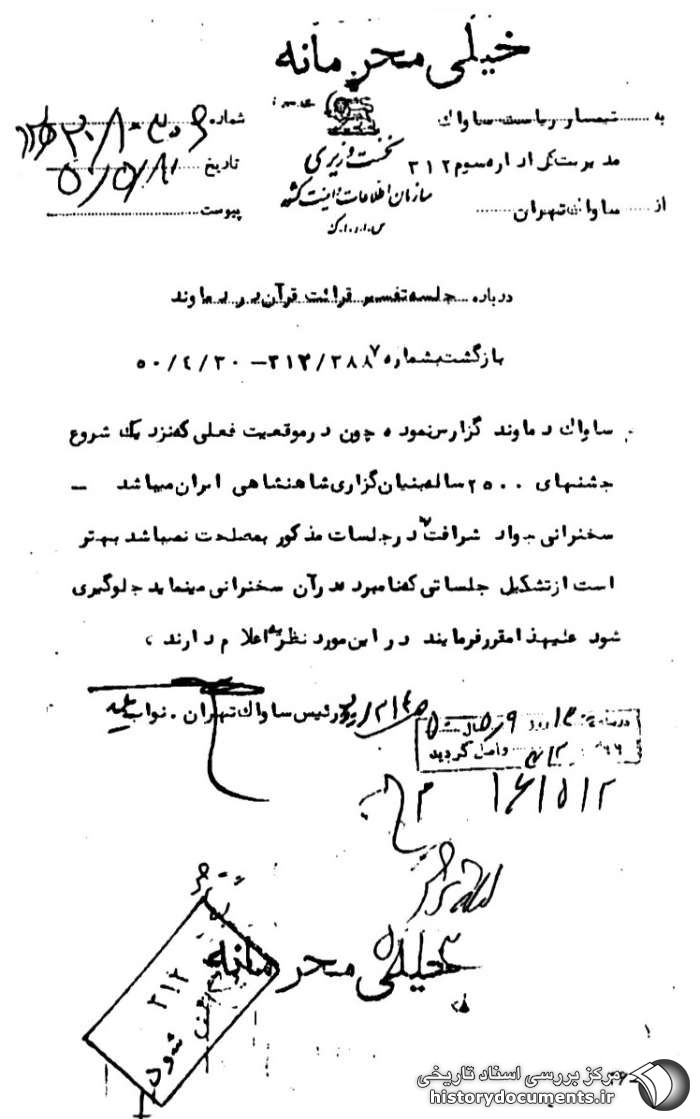 خیلی محرمانه
به تیمسار ریاست ساواک
مدیریت کل اداره سوم ۳۱۲
از ساواک تهران
نخست وزیری
سازمان اطلاعات و امنیت کشور
س.ا.و.ا.ک
شماره
تاریخ ۵۰/۵/۱۱
پیوست
درباره جلسه تفسیر قرائت قرآن در دماوند
بازگشت بشماره ۳۱۲/۳۸۸۷ – ۵۰/۴/۳۰
ساواک دماوند گزارش نموده چون در موقعیت فعلی که نزدیک شروع
جشنهای ۲۵۰۰ ساله بنیان گزاری شاهنشاهی ایران میباشد –
سخنرانی جواد شرافت در جلسات مذکور بمصلحت نمیباشد بهتر
است از تشکیل جلساتی که نامبرده در آن سخنرانی مینماید جلوگیری
شود علیهذا مقرر فرمایند در این مورد نظریه اعلام دارند،
رئیس ساواک تهران . نواب
واصل گردید
۱۶۱۵۱۲
خیلی محرمانه
۳۱۲
شود
مرکز بررسی اسناد تاریخی
historydocuments.ir